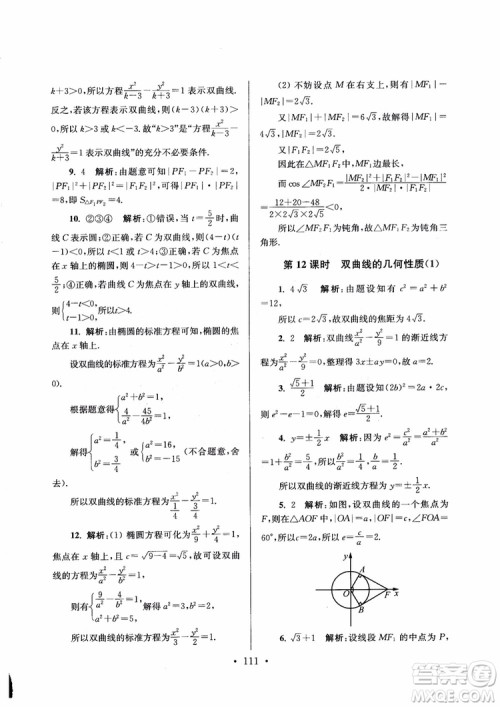 k+3>0，所以方程x²/(k-3) - y²/(k+3)=1表示双曲线.
反之，若该方程表示双曲线，则(k-3)(k+3)
>0，所以k>3或k<-3.所以k>3是方程x²/(k-3) -
y²/(k+3)=1表示双曲线”的充分不必要条件.
9. 4 解析：由题意可知|PF₁-PF₂|=2，
|PF₁|²+|PF₂|²=|F₁F₂|²=20，所以|PF₁|·
|PF₂|=8，S△F₁PF₂=4.
10. ②③④ 解析：①错误，当t=5/2时，曲
线C表示圆；②正确，若C为双曲线，则(4-t)·
(t-1)<0，所以t<1或t>4；③正确，若曲线C
表示焦点在x轴上的椭圆，则4-t>t-1>0，所
以1<t<5/2；④正确，若曲线C表示焦点在y轴
上的双曲线，
则{4-t<0, t-1>0，所以t>4.
11. 解析：由椭圆的标准方程可知，椭圆的焦
点在x轴上.
设双曲线的标准方程为x²/a² - y²/b²=1(a>0，b>
0).
根据题意得
解得{a²=1/4, b²=3/4
(不合题意，舍
去).
所以双曲线的标准方程为
12. 解析：(1) 椭圆方程可化为x²/9+y²/4=1，
焦点在x轴上，且c=√(9-4)=√5.
故设双曲线的标准方程为x²/a² - y²/b²=1，
则有{9/a² - 4/b²=1, a²+b²=5，解得a²=3，b²=2，
所以双曲线的标准方程为x²/3 - y²/2=1.
(2) 不妨设点M在右支上，则有|MF₁|-
|MF₂|=2√3.
又|MF₁|+|MF₂|=6√3，所以|MF₁|=
4√3，|MF₂|=2√3.
又|F₁F₂|=2√5，
因此在△MF₁F₂中，边MF₁最长，
而cos∠MF₂F₁=(|MF₂|²+|F₁F₂|²-|MF₁|²)/(2|MF₂|·|F₁F₂|)=
(12+20-48)/(2×2√3×2√5)<0，所以∠MF₂F₁为钝角，
故△MF₁F₂为钝角三角形.
第12课时 双曲线的几何性质(1)
1. 4√3 解析：根据题意得c²=
=12，所以该双曲线的焦距为4√3.
2. 2 解析：双曲线的渐近线方程为x²/a² -
y²/9=0，整理得3x±ay=0，所以a=2.
3. (√5+1)/2 解析：由题设知(2b)²=2a·
2c，即b²=ac，所以c²-a²=ac，
所以e²-e-1=0，解得e=(√5+1)/2(e>1).
4. y=±1/2 x 解析：因为e²=c²/a²=(a²+b²)/a²=
所以双曲线的渐近线方程为y=±1/2 x.
5. 2 解析：设双曲线的一个焦点为F，
则在△AOF中，|OA|=a，|OF|=c，∠AOF=
60°，所以e=c/a=2.
y
A
O
F
x
6. √3+1 解析：设线段MF₁的中点为P，
· 111 ·
答案圈
MXQE.COM